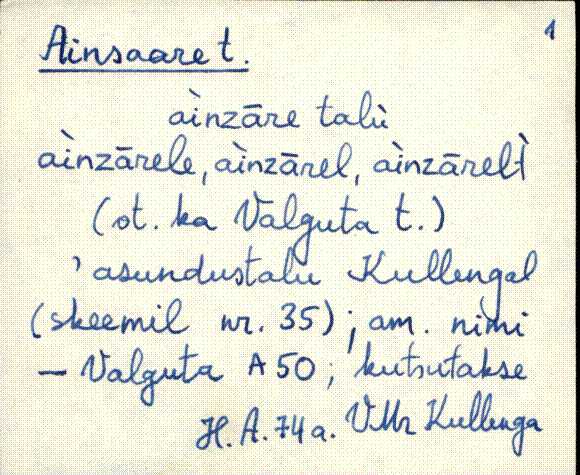 1
Ainsaare t.
aìnzāre talù
aìnzārele, aìnzārel, aìnzārelt̀
(ot. ka Valguta t.)
' asundustalu Kullengal
(skeemil nr. 35); am. nimi
- Valguta A 50; kutsutakse
H. A. 74 a. VMr Kullenga